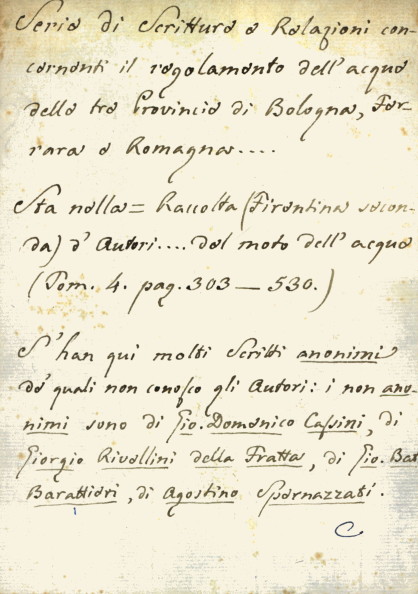 Serie di Scritture e Relazioni con-
cernenti il regolamento dell'acque
delle tre Provincie di Bologna, Fer-
rara e Romagna....
Sta nelle = Raccolta (Firentina secon-
da) d'Autori.... del moto dell'acque
(Tom. 4. pag. 303 — 530.)
S'han qui molti Scritti anonimi
de' quali non conosco gli Autori: i non ano-
nimi sono di Gio. Domenico Cassini, di
Giorgio Rivellini della Fratta, di Gio. Bat
Barattieri, di Agostino Spernazzati.
C